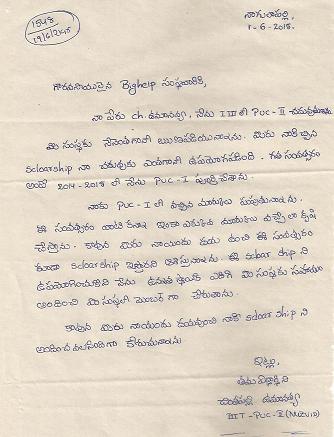 1548
19/6/2015
నాగులపల్లి,
8-6-2018.
గౌరవనీయులైన Bighelp సంస్థవారికి,
నా పేరు ch. ఉమానవ్య, నేను IIIT లో PUC-II చదువుతున్నాను.
మీ సంస్థకు నేనెంతగానో ఋణపడియున్నాను. మీరు నాకిచ్చిన
scloarship నా చదువుకు ఎంతగానో ఉపయోగపడింది. గత సంవత్సరం
అంటే 2014-2018 లో నేను PUC-I పూర్తిచేశాను.
నాకు PUC-I లో వచ్చిన మార్కులు పంపుతున్నాను.
ఈ సంవత్సరం వాటి కన్నా ఇంకా ఎక్కువ మార్కులు వచ్చేలా కృషి
చేస్తాను. కావున మీరు నాయందు దయ ఉంచి ఈ సంవత్సరం
కూడా scloarship ఇవ్వాలని ఆశిస్తున్నాను. ఈ scloar ship ని
ఉపయోగించుకొని నేను ఉన్నత స్థాయికి ఎదిగి మీ సంస్థకు సహాయం
అందించి మీ సంస్థలో మెంబర్ గా చేరుతాను.
కావున మీరు నాయందు దయవుంచి నాకీ scloar ship ని
అందించవలసిందిగా కోరుతున్నాను
ఇట్లు,
తమ విద్యార్థిని
ఉమానవ్య
IIIT-PUC-II (Nuzvid)